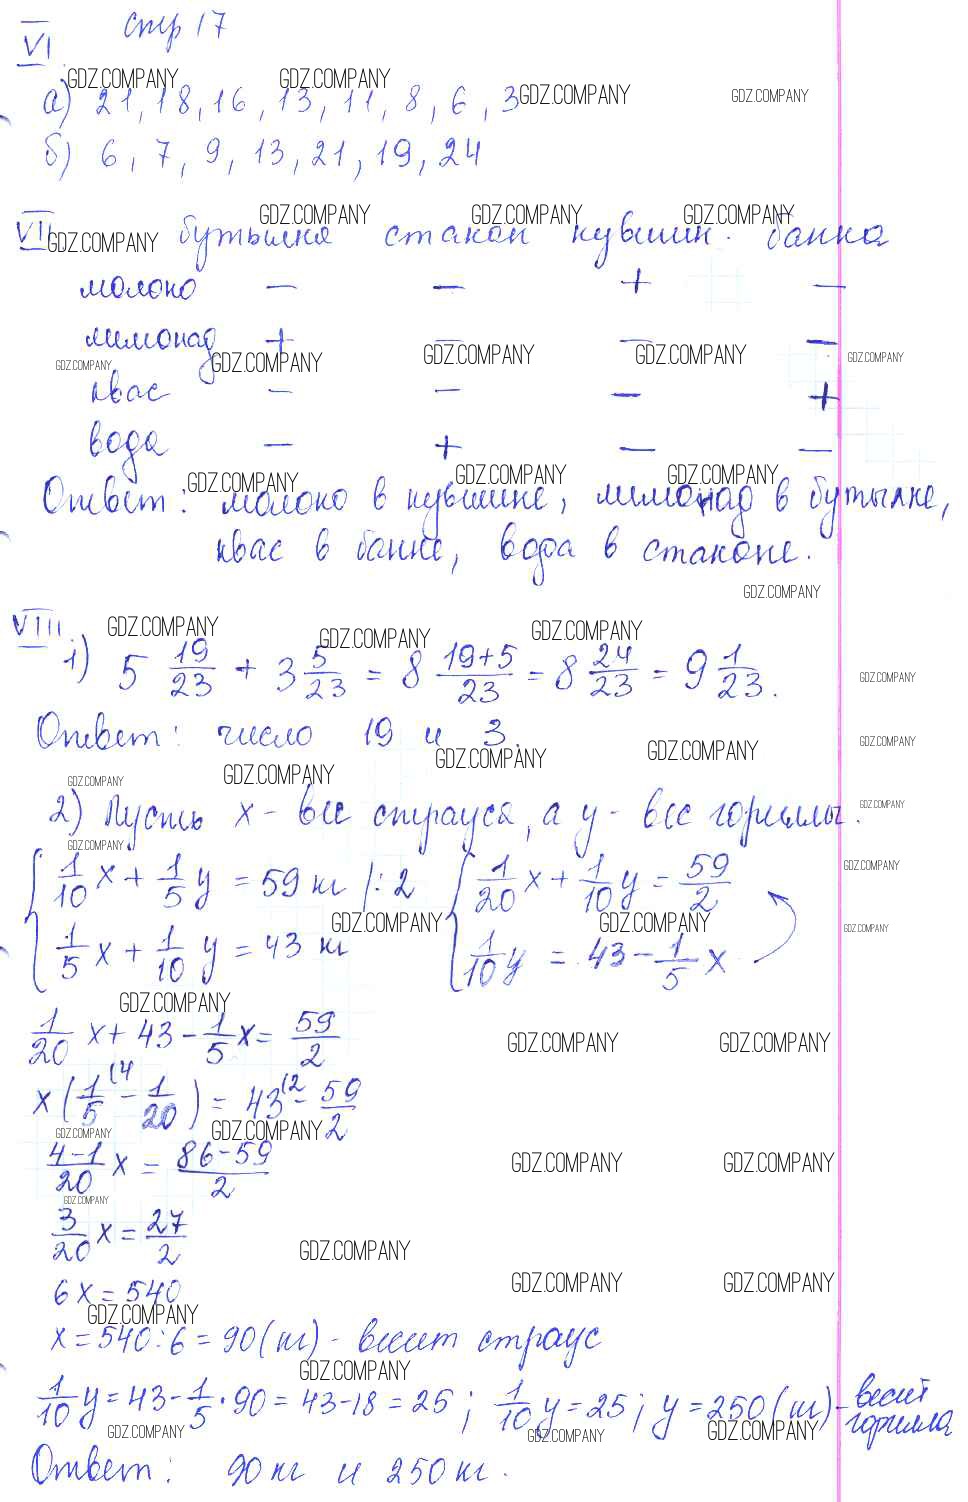 стр 17
VI
а) 21, 18, 16, 13, 11, 8, 6, 3
б) 6, 7, 9, 13, 21, 19, 24
VII бутылка стакан кувшин банка
молоко − − + −
лимонад + − − −
квас − − − +
вода − + − −
Ответ: молоко в кувшине, лимонад в бутылке,
квас в банке, вода в стакане.
VIII.
1) 5 19/23 + 3 5/23 = 8 (19+5)/23 = 8 24/23 = 9 1/23.
Ответ: число 19 и 3.
2) Пусть x - вес страуса, а y - вес гориллы.
{ 1/10 x + 1/5 y = 59 кг |: 2 { 1/20 x + 1/10 y = 59/2
1/5 x + 1/10 y = 43 кг 1/10 y = 43 - 1/5 x
1/20 x + 43 - 1/5 x = 59/2
x (1/5 (4 - 1/20) = 43 (2 - 59/2
(4-1)/20 x = (86-59)/2
3/20 x = 27/2
6x = 540
x = 540 : 6 = 90 (кг) - весит страус
1/10 y = 43 - 1/5 · 90 = 43 - 18 = 25; 1/10 y = 25; y = 250 (кг) - весит горилла
Ответ: 90 кг и 250 кг.
GDZ.COMPANY